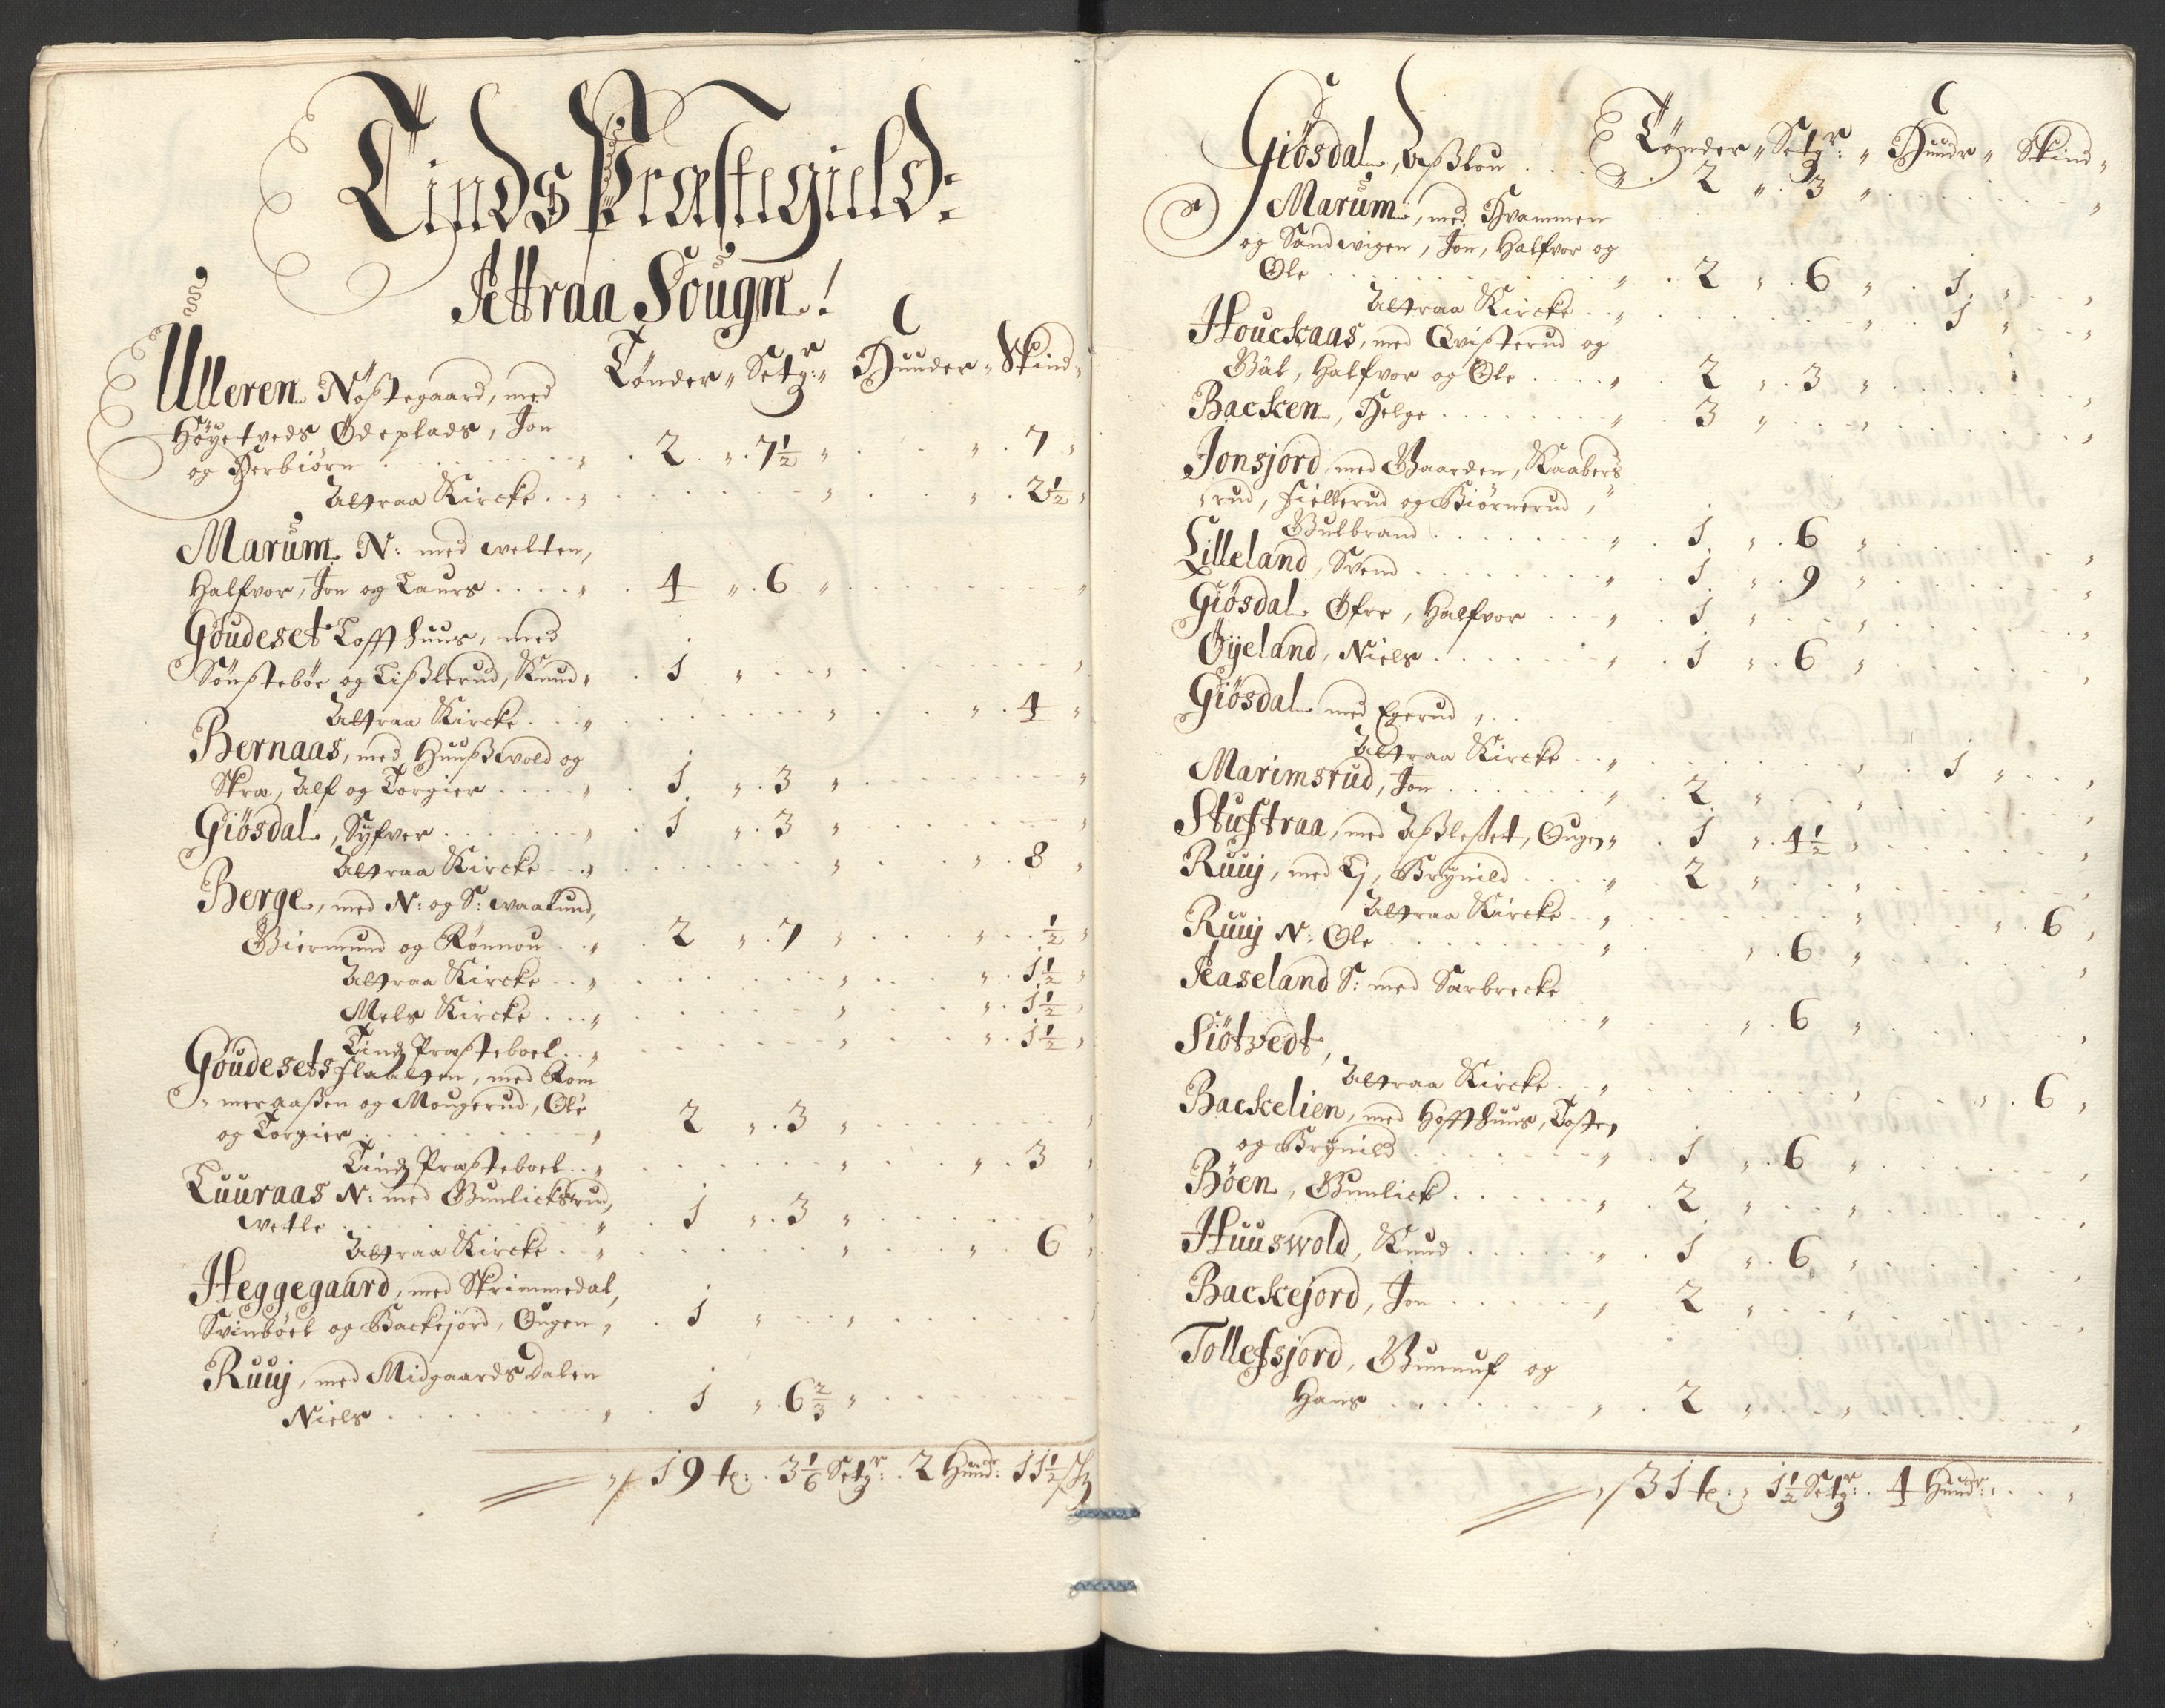 Tinds Præstegield:
Attraa Sougn!
Tønder „ Setgr: „ Hunder „ Skind „
Ulleren Nøstegaard, med
Høyetveds Ødeplads, Jon
og Herbiørn . . . „ . 2 „ . 7½ „ . . „ . 7 „
Attraa Kircke . . „ . . . „ . . „ . 2½ „
Marum N: med welten,
Halfvor, Jon og Laurs . . . . „ . 4 „ . 6 „ . . . „
Goudeset Loffthuus, med
Sønstebøe og Lisslerud, Knud „ . 1 „ . . „ . . . „
Attraa Kircke . . „ . . . „ . . „ . 4 „
Bernaas, med Huusswold og
Skræ, Alf og Torgier . . . . „ . 1 „ . 3 „ . . . „
Giøsdal, Syfver . . . „ . 1 „ . 3 „ . . . „
Attraa Kircke . . „ . . . „ . . „ . 8 „
Berge, med N: og S: waalund,
Giermund og Rønnou . . „ . 2 „ . 7 „ . . „ . . ½ „
Attraa Kircke . . „ . . . „ . . „ . 1½ „
Mels Kircke . . . „ . . . „ . . „ . 1½ „
Tindz Præsteboel . . „ . . . „ . . „ . 1½ „
Goudesets Flaatten, med Røm
„ meraasen og Mougerud, Ole
og Torgier . . . „ . 2 „ . 3 „ . . . „
Tindz Præsteboel . . „ . . . „ . . „ . 3 „
Luuraas N: med Gunlicksrud,
wetle . . . „ . 1 „ . 3 „ . . . „
Attraa Kircke . . „ . . . „ . . „ . 6 „
Heggegaard, med Skrimmedal,
Svinbøel og Backejord, Ougen „ . 1 „ . . „ . . . „
Ruuj, med Midgaards Dalen
Niels . . . „ . 1 „ . 6⅔ „ . . .
19 t: . 3⅙ Setgr: . 2 Hundr: 11½ Sk
Tønder „ Setgr: „ Hundr „ Skind „
Giøsdal, Asslou . . . „ . 2 „ . 3 „ . . . „
Marum, med Hvammen
og Sandwigen, Jon, Halfvor og
Ole . . . „ . 2 „ . 6 „ . 1 „ . . „
Attraa Kircke . . „ . . . „ . 1 „ . . „
Houckaas, med Qvisterud og
Bøl, Halfvor og Ole . . . . „ . 2 „ . 3 „ . . . „
Backen, Helge . . . „ . 3 „ . . „ . . . „
Jonsjord, med Gaarden, Kaabers
„ rud, Fielterud og Biørnerud,
Gulbrand . . . „ . 1 „ . 6 „ . . . „
Lilleland, Svend . . . „ . 1 „ . 9 „ . . . „
Giøsdal Øfre, Halfvor . . . „ . 1 „ . . „ . . . „
Øyeland, Niels . . . „ . 1 „ . 6 „ . . . „
Giøsdal med Egerud, . .
Attraa Kircke . . „ . . . „ . 1 „ . . „
Marimsrud, Jon . . . „ . 2 „ . . „ . . . „
Stuftraa, med Asslesset, Ougen „ . 1 „ . 4½ „ . . . „
Ruuj, med Lj, Brynild . . . „ . 2 „ . . „ . . . „
Attraa Kircke . . „ . . . „ . . „ . 6 „
Ruuj N: Ole . . . „ . . „ . 6 „ . . . „
Aaseland S: med Sarbrecke
„ . . „ . 6 „ . . . „
Siøtvedt,
Attraa Kircke . . „ . . . „ . . „ . 6 „
Backelien, med Hoffthuus, Tosten
og Brynild . . . „ . 1 „ . 6 „ . . . „
Bøen, Gunlick . . . „ . 2 „ . . „ . . . „
Huuswold, Knud . . . „ . 1 „ . 6 „ . . . „
Backejord, Jon . . . „ . 2 „ . . „ . . . „
Tollefsjord, Gunnuf og
Hans . . . „ . 2 „ . . „ . . . „
31 t: „ 1½ Setgr: . 4 Hundr: . . . „